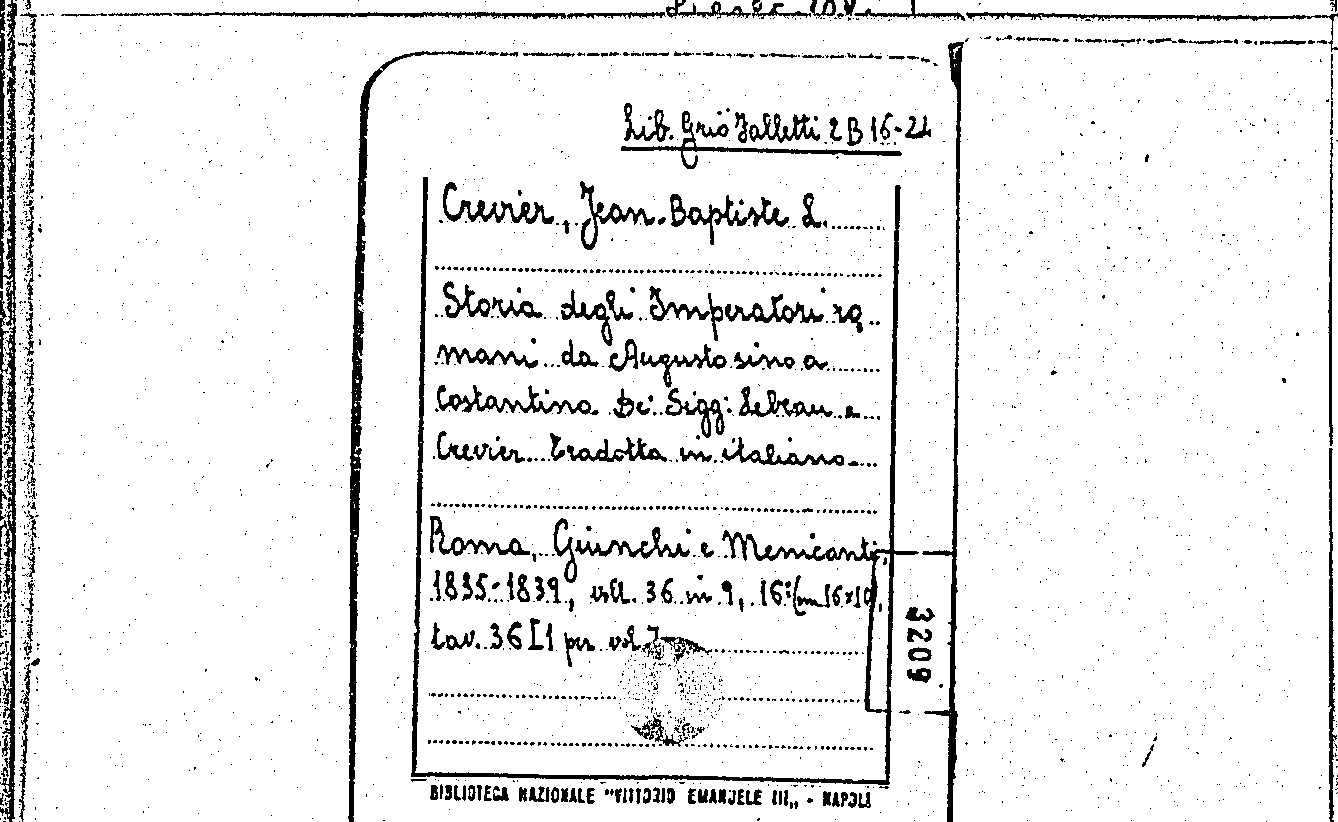 Lib. Grio Galletti 2 B 16-21
Crevier, Jean-Baptiste L.
Storia degli Imperatori ro-
mani da Augusto sino a
Costantino. Dei Sigg: Lebeau e
Crevier tradotta in italiano.
Roma, Giunchi e Menicanti,
1835-1839, voll. 36 in 9, 16° (cm 16x10),
tav. 36 [1 per vol.]
3209
BIBLIOTECA NAZIONALE "VITTORIO EMANUELE III„ - NAPOLI